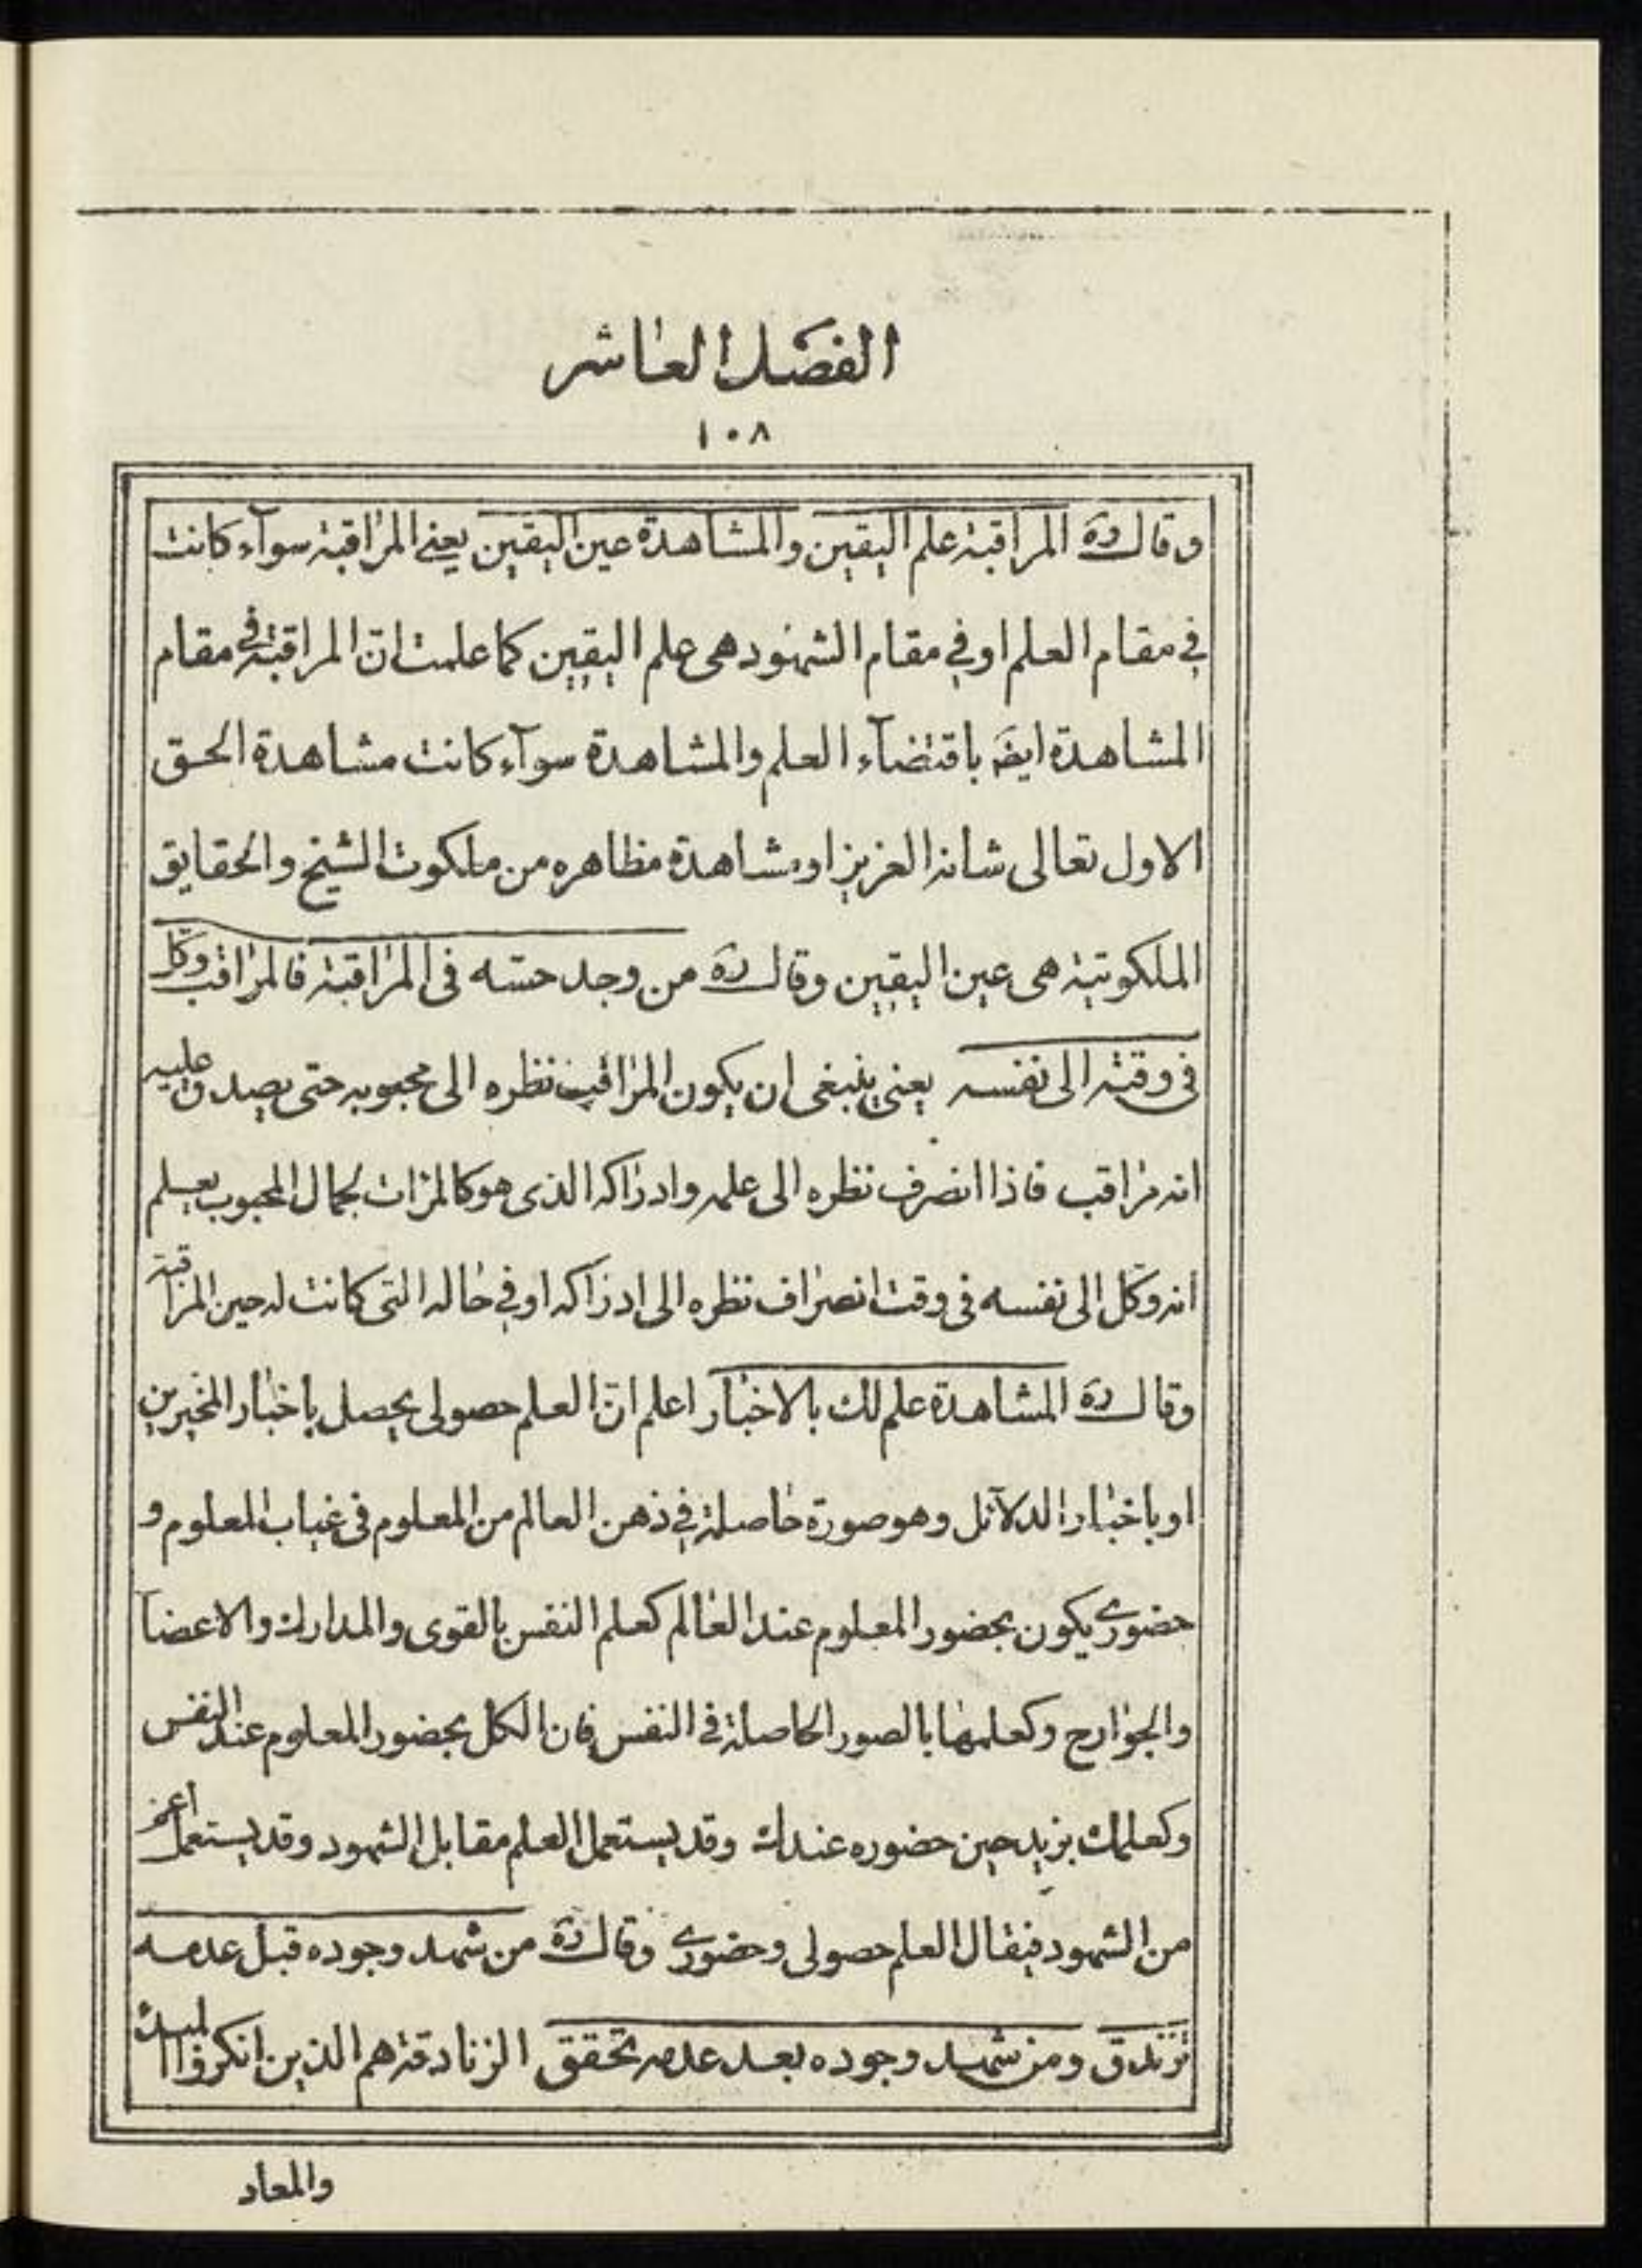 الفصل العاشر
١٠٨
وقال ره المراقبة علم اليقين والمشاهدة عين اليقين يعنى المراقبة سوآء كانت
في مقام العلم او في مقام الشهود هى علم اليقين كما علمت ان المراقبة في مقام
المشاهدة ايضَ باقتضآء العلم والمشاهدة سوآء كانت مشاهدة الحق
الاول تعالى شانه العزيز او مشاهدة مظاهره من ملكوت الشيخ والحقايق
الملكوتية هى عين اليقين وقال ره من وجد حسّه فى المراقبة فالمراقب وكّل
فى وقته الى نفسه يعنى ينبغى ان يكون المراقب نظره الى محبوبه حتى يصدق عليه
انه مراقب فاذا انصرف نظره الى علمه وادراكه الذى هو كالمرات لجمال المحبوب يعلم
انه وكّل الى نفسه فى وقت انصراف نظره الى ادراكه او في حاله التى كانت له حين المراقبة
وقال ره المشاهدة علم لك بالاخبار اعلم انّ العلم حصولى يحصل باخبار المخبرين
او باخبار الدلآئل وهو صورة حاصلة في ذهن العالم من المعلوم فى غياب المعلوم و
حضورى يكون بحضور المعلوم عند العالم كعلم النفس بالقوى والمدارك والاعضآ
والجوارح وكعلمها بالصور الحاصلة فى النفس فان الكل بحضور المعلوم عند النفس
وكعلمك بزيد حين حضوره عندك وقد يستعمل العلم مقابل الشهود وقد يستعمل اعم
من الشهود فيقال العلم حصولى وحضورى وقال ره من شهد وجوده قبل عدمه
تزندق ومن شهد وجوده بعد عدمه تحقق الزنادقة هم الذين انكروا المبدء
والمعاد